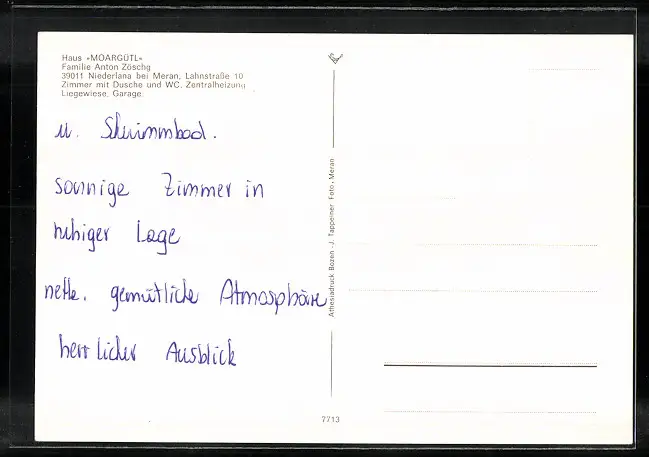 Haus «MOARGÜTL»
Familie Anton Zöschg
39011 Niederlana bei Meran, Lahnstraße 10
Zimmer mit Dusche und WC. Zentralheizung
Liegewiese, Garage.
u. Schwimmbad.
sonnige Zimmer in
ruhiger Lage
nette, gemütliche Atmosphäre
herrlicher Ausblick
Athesiadruck Bozen - J. Tappeiner Foto, Meran
7713